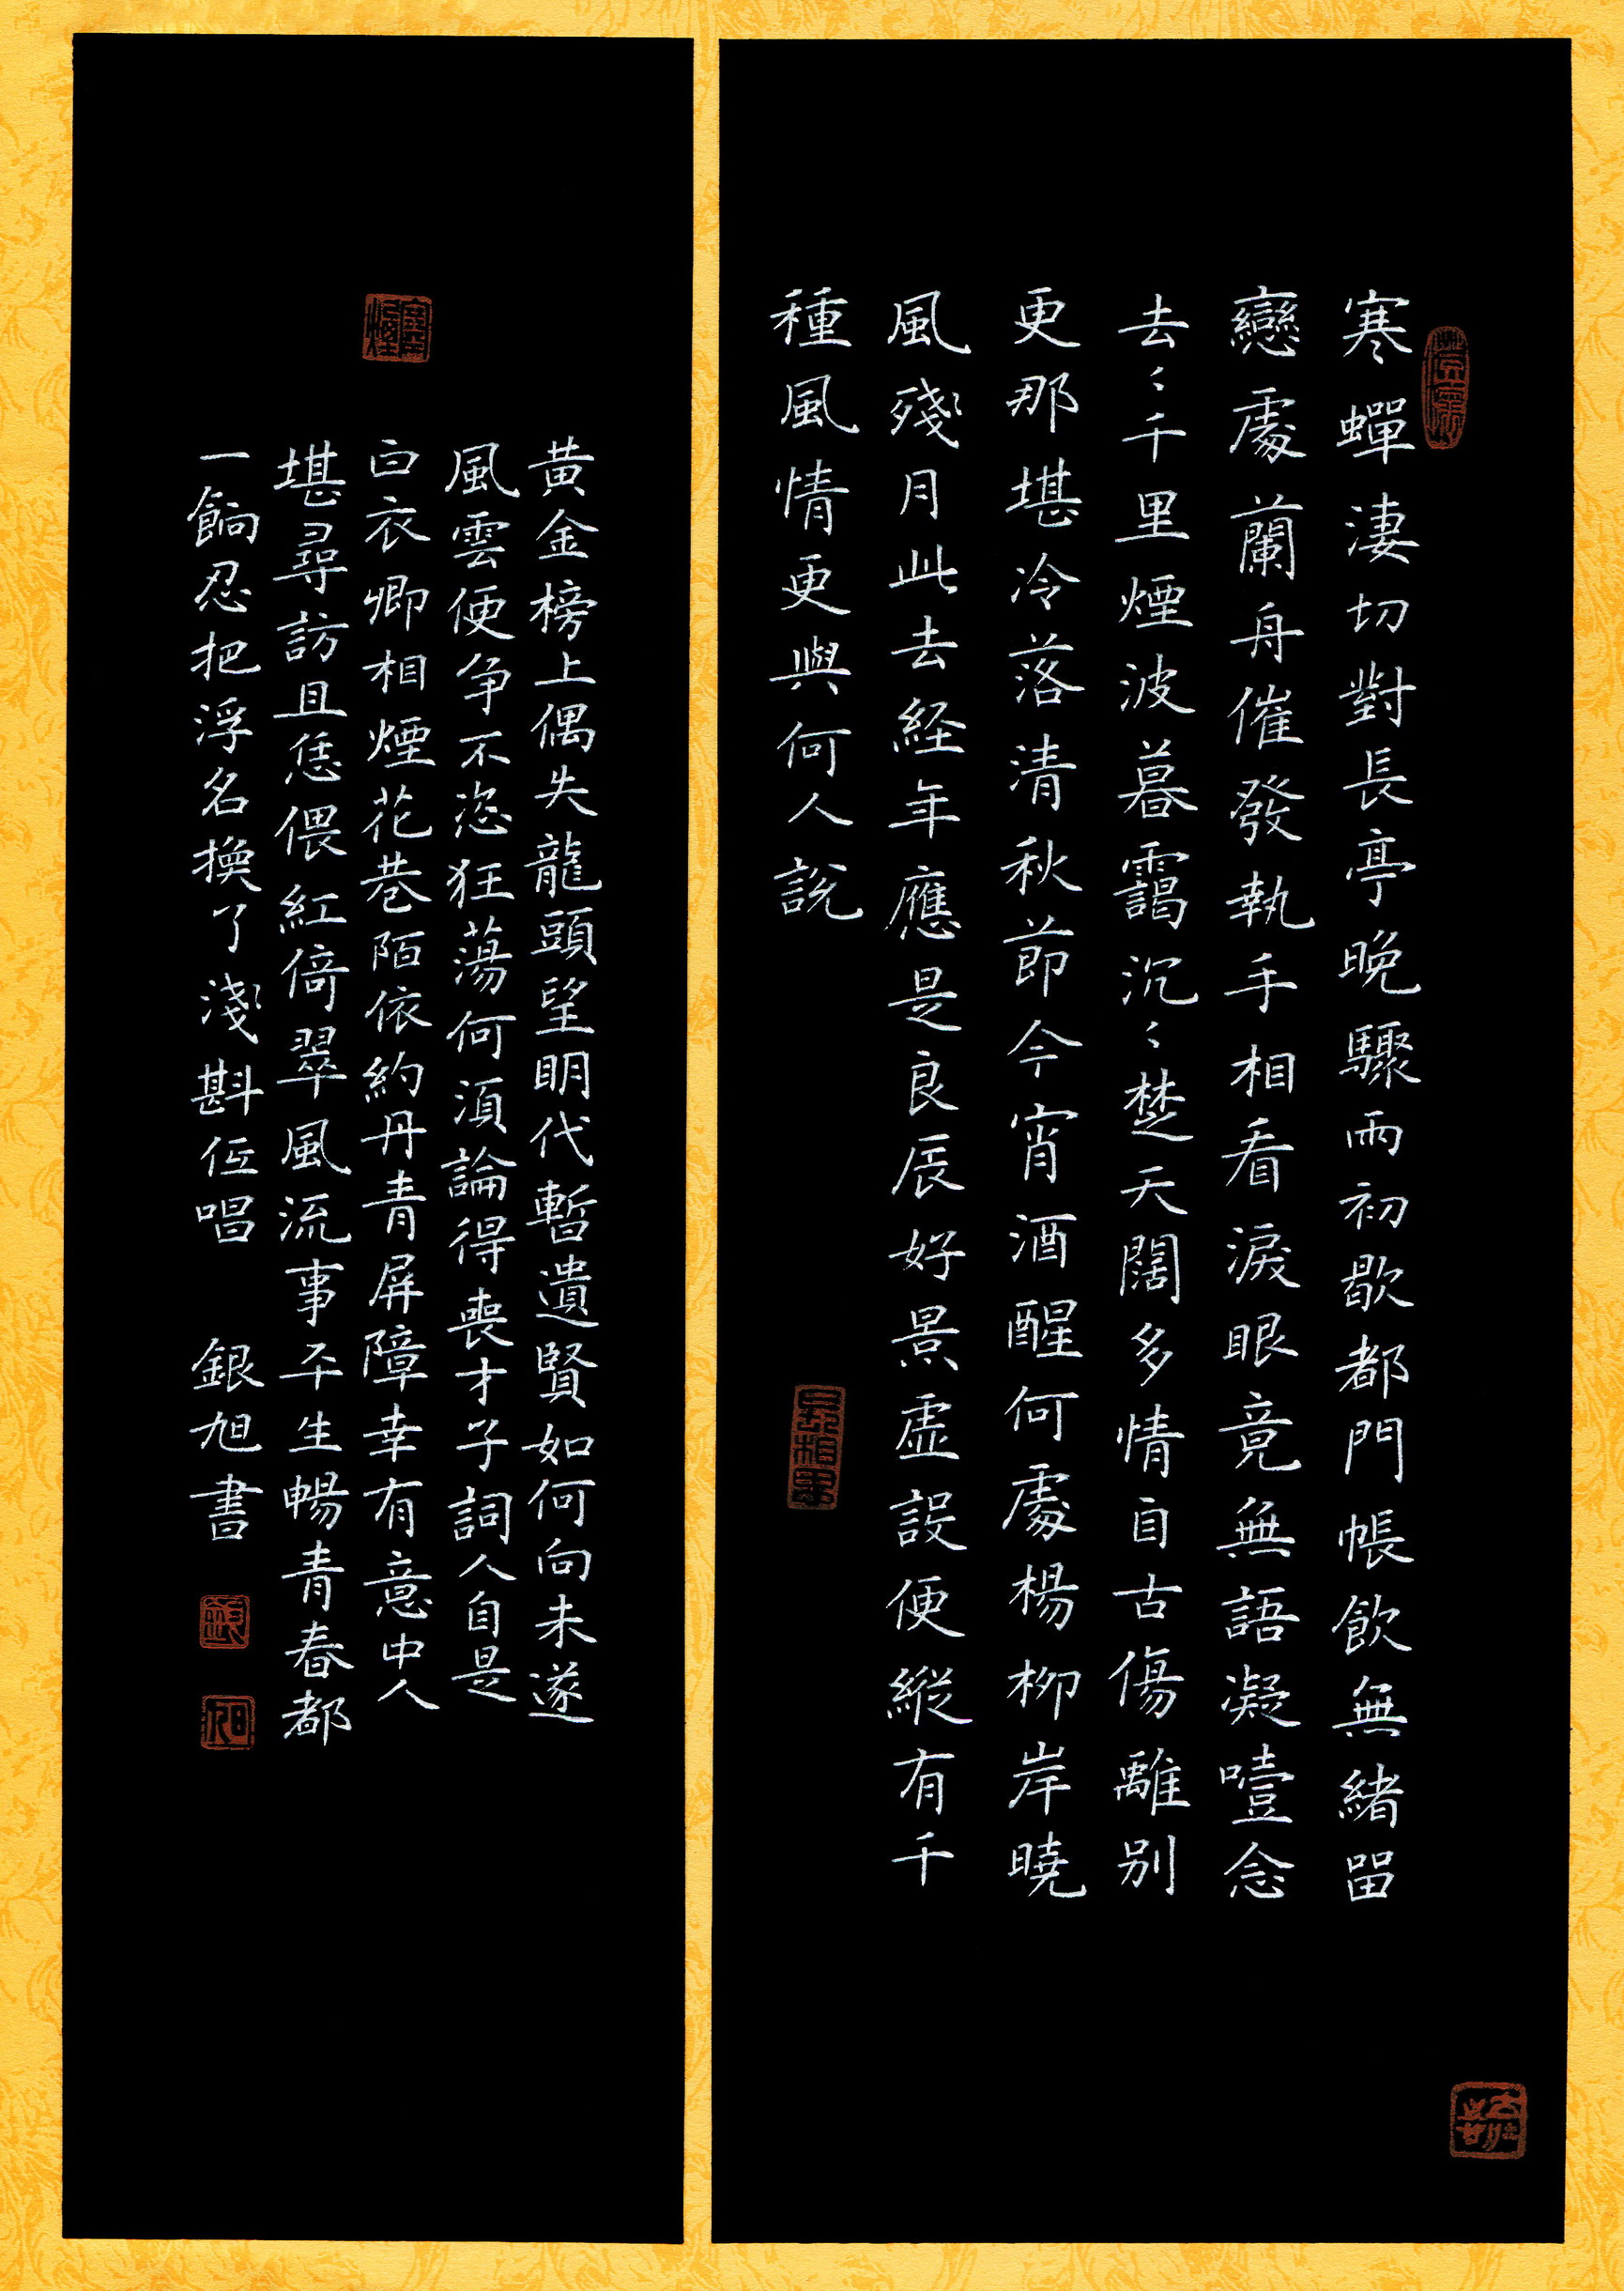 寒蟬淒切對長亭晚驟雨初歇都門帳飲無緒留
戀處蘭舟催發執手相看淚眼竟無語凝噎念
去〻千里煙波暮靄沉〻楚天闊多情自古傷離別
更那堪冷落清秋節今宵酒醒何處楊柳岸曉
風殘月此去経年應是良辰好景虛設便縱有千
種風情更與何人說
黃金榜上偶失龍頭望明代暫遺賢如何向未遂
風雲便爭不恣狂蕩何須論得喪才子詞人自是
白衣卿相煙花巷陌依約丹青屏障幸有意中人
堪尋訪且恁偎紅倚翠風流事平生暢青春都
一餉忍把浮名換了淺斟低唱 銀旭書